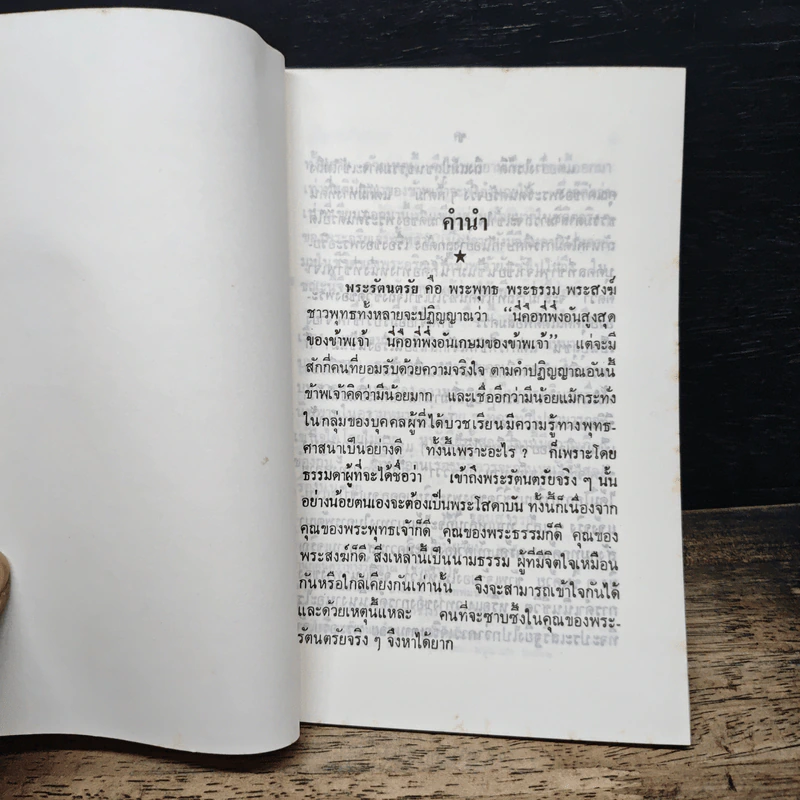 คำนำ
★
พระรัตนตรัย คือ พระพุทธ พระธรรม พระสงฆ์
ชาวพุทธทั้งหลายจะปฏิญญาณว่า "นี่คือที่พึ่งอันสูงสุด
ของข้าพเจ้า นี่คือที่พึ่งอันเกษมของข้าพเจ้า" แต่จะมี
สักกี่คนที่ยอมรับด้วยความจริงใจ ตามคำปฏิญญาณอันนี้
ข้าพเจ้าคิดว่ามีน้อยมาก และเชื่ออีกว่ามีน้อยแม้กระทั่ง
ในกลุ่มของบุคคลผู้ที่ได้บวชเรียนมีความรู้ทางพุทธ-
ศาสนาเป็นอย่างดี ทั้งนี้เพราะอะไร ? ก็เพราะโดย
ธรรมดาผู้ที่จะได้ชื่อว่า เข้าถึงพระรัตนตรัยจริง ๆ นั้น
อย่างน้อยตนเองจะต้องเป็นพระโสดาบัน ทั้งนี้ก็เนื่องจาก
คุณของพระพุทธเจ้าก็ดี คุณของพระธรรมก็ดี คุณของ
พระสงฆ์ก็ดี สิ่งเหล่านี้เป็นนามธรรม ผู้ที่มีจิตใจเหมือน
กันหรือใกล้เคียงกันเท่านั้น จึงจะสามารถเข้าใจกันได้
และด้วยเหตุนี้แหละ คนที่จะซาบซึ้งในคุณของพระ-
รัตนตรัยจริง ๆ จึงหาได้ยาก